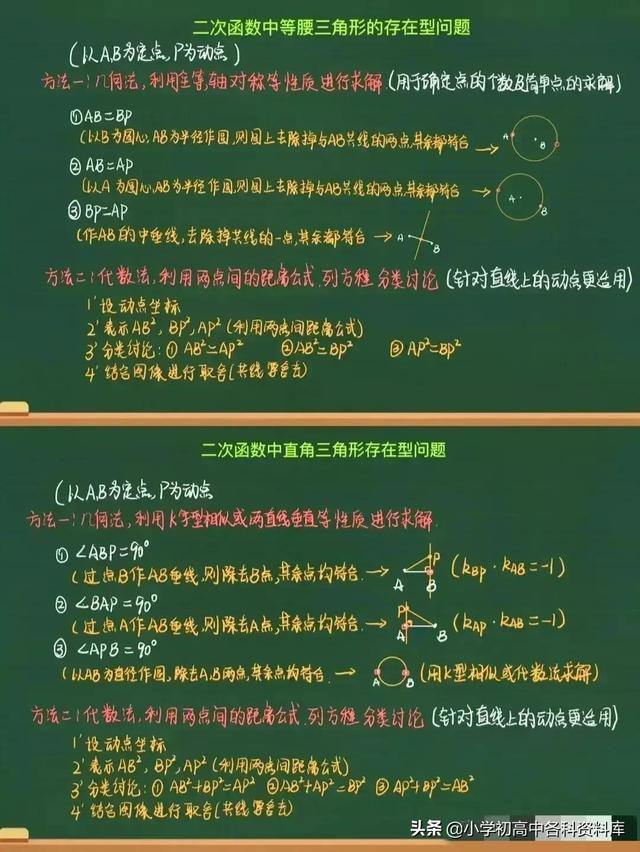 二次函数中等腰三角形的存在型问题
(以A,B为定点,P为动点)
方法一:几何法,利用全等,轴对称等性质进行求解(用于确定点的个数及简单点的求解)
①AB=BP
(以B为圆心,AB为半径作圆,则圆上去除掉与AB共线的两点,其余都符合 →
A
B
②AB=AP
(以A为圆心,AB为半径作圆,则圆上去除掉与AB共线的两点,其余都符合 →
A
B
③BP=AP
(作AB的中垂线,去除掉共线的一点,其余都符合 →
A
B
方法二:代数法,利用两点间的距离公式.列方程 分类讨论(针对直线上的动点更适用)
1'设动点坐标
2'表示AB²,BP²,AP²(利用两点间距离公式)
3'分类讨论:①AB²=AP² ②AB²=BP² ③AP²=BP²
4'结合图像进行取舍(共线要舍去)
二次函数中直角三角形存在型问题
(以A,B为定点,P为动点
方法一:几何法,利用K字型相似或两直线垂直等性质进行求解.
①∠ABP=90°
(过点B作AB垂线,则除去B点,其余点均符合. → (kBP·kAB=-1)
P
A
B
②∠BAP=90°
(过点A作AB垂线,则除去A点,其余点均符合. → (kAP·kAB=-1)
P
A
B
③∠APB=90°
(以AB为直径作圆,除去A,B两点,其余点均符合. → (用K型相似或代数法求解)
A
B
方法二:代数法,利用两点间的距离公式.列方程 分类讨论(针对直线上的动点更适用)
1'设动点坐标
2'表示AB²,BP²,AP²(利用两点间距离公式)
3'分类讨论:①AB²+BP²=AP² ②AB²+AP²=BP² ③AP²+BP²=AB²
4'结合图像进行取舍(共线要舍去)
头条 @小学初高中各科资料库